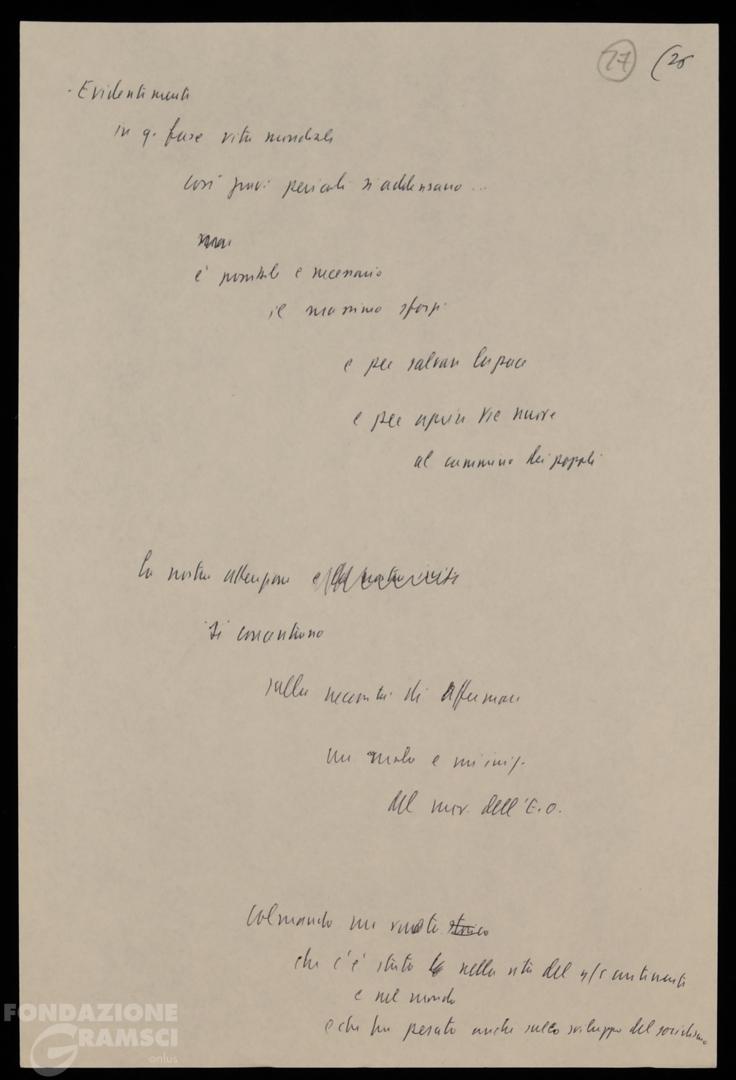 17 (26
- Evidentemente
in q. fase vita mondiale
così gravi pericoli si addensano ...
ma
è possibile e necessario
il massimo sforzo
e per salvare la pace
e per aprire vie nuove
al cammino dei popoli
la nostra attenzione e
si concentrano
sulla necessità di affermare
un ruolo e iniz.
del mov. dell'E.O.
Colmando un vuoto storico
che c'è stato nella vita del n/s continente
e nel mondo
e che ha pesato anche sullo sviluppo del socialismo
FONDAZIONE
GRAMSCI
onlus